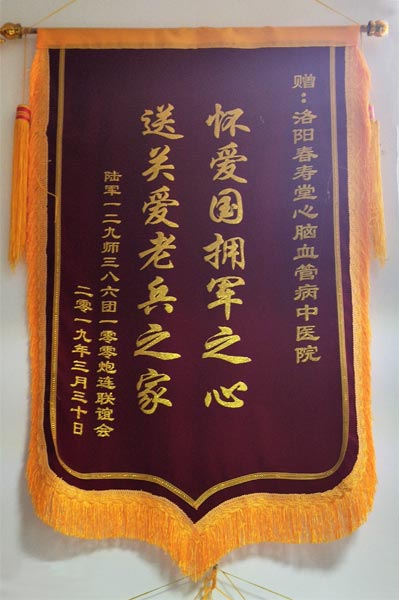 赠：洛阳春寿堂心脑血管病中医院
怀爱国拥军之心
送关爱老兵之家
陆军一二九师三八六团一零零炮连联谊会
二零一九年三月三十日